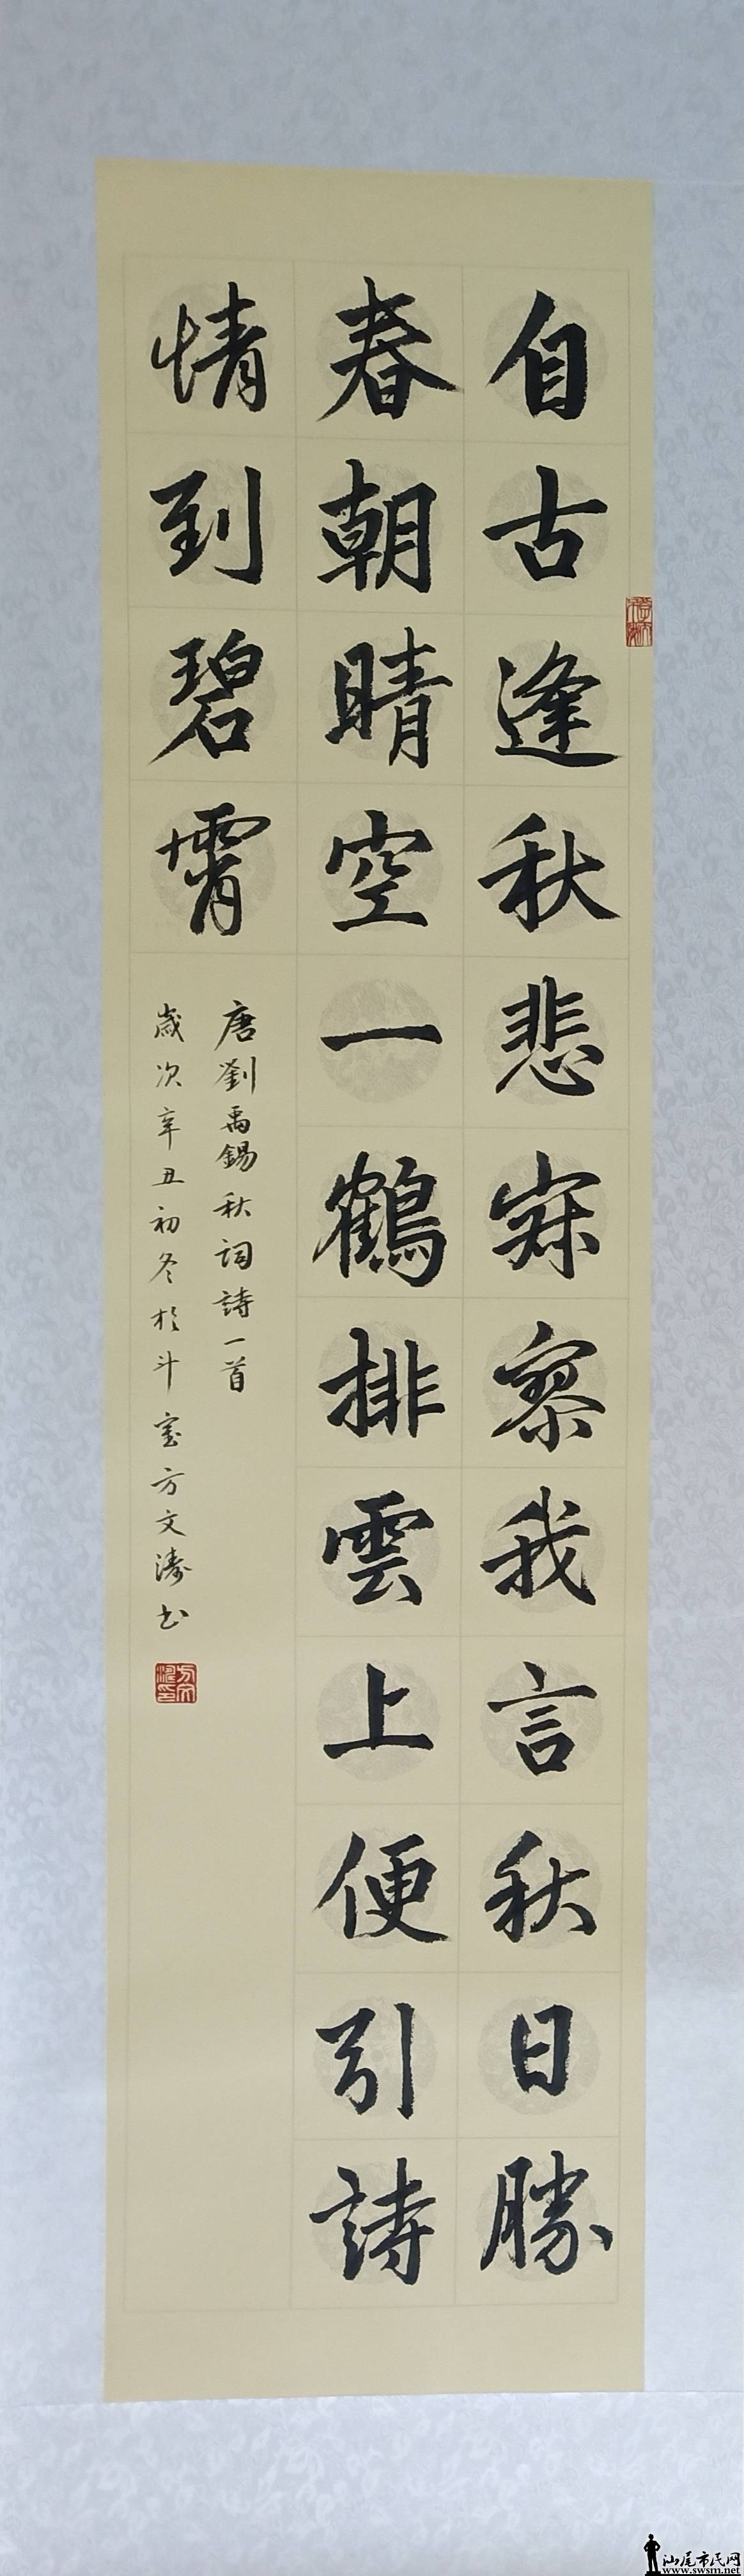 自古逢秋悲寂寥我言秋日勝
春朝晴空一鶴排雲上便引詩
情到碧霄
唐劉禹錫秋詞詩一首
歲次辛丑初冬於斗室方文濤書
方文濤印
汕尾市民网
www.swsm.net